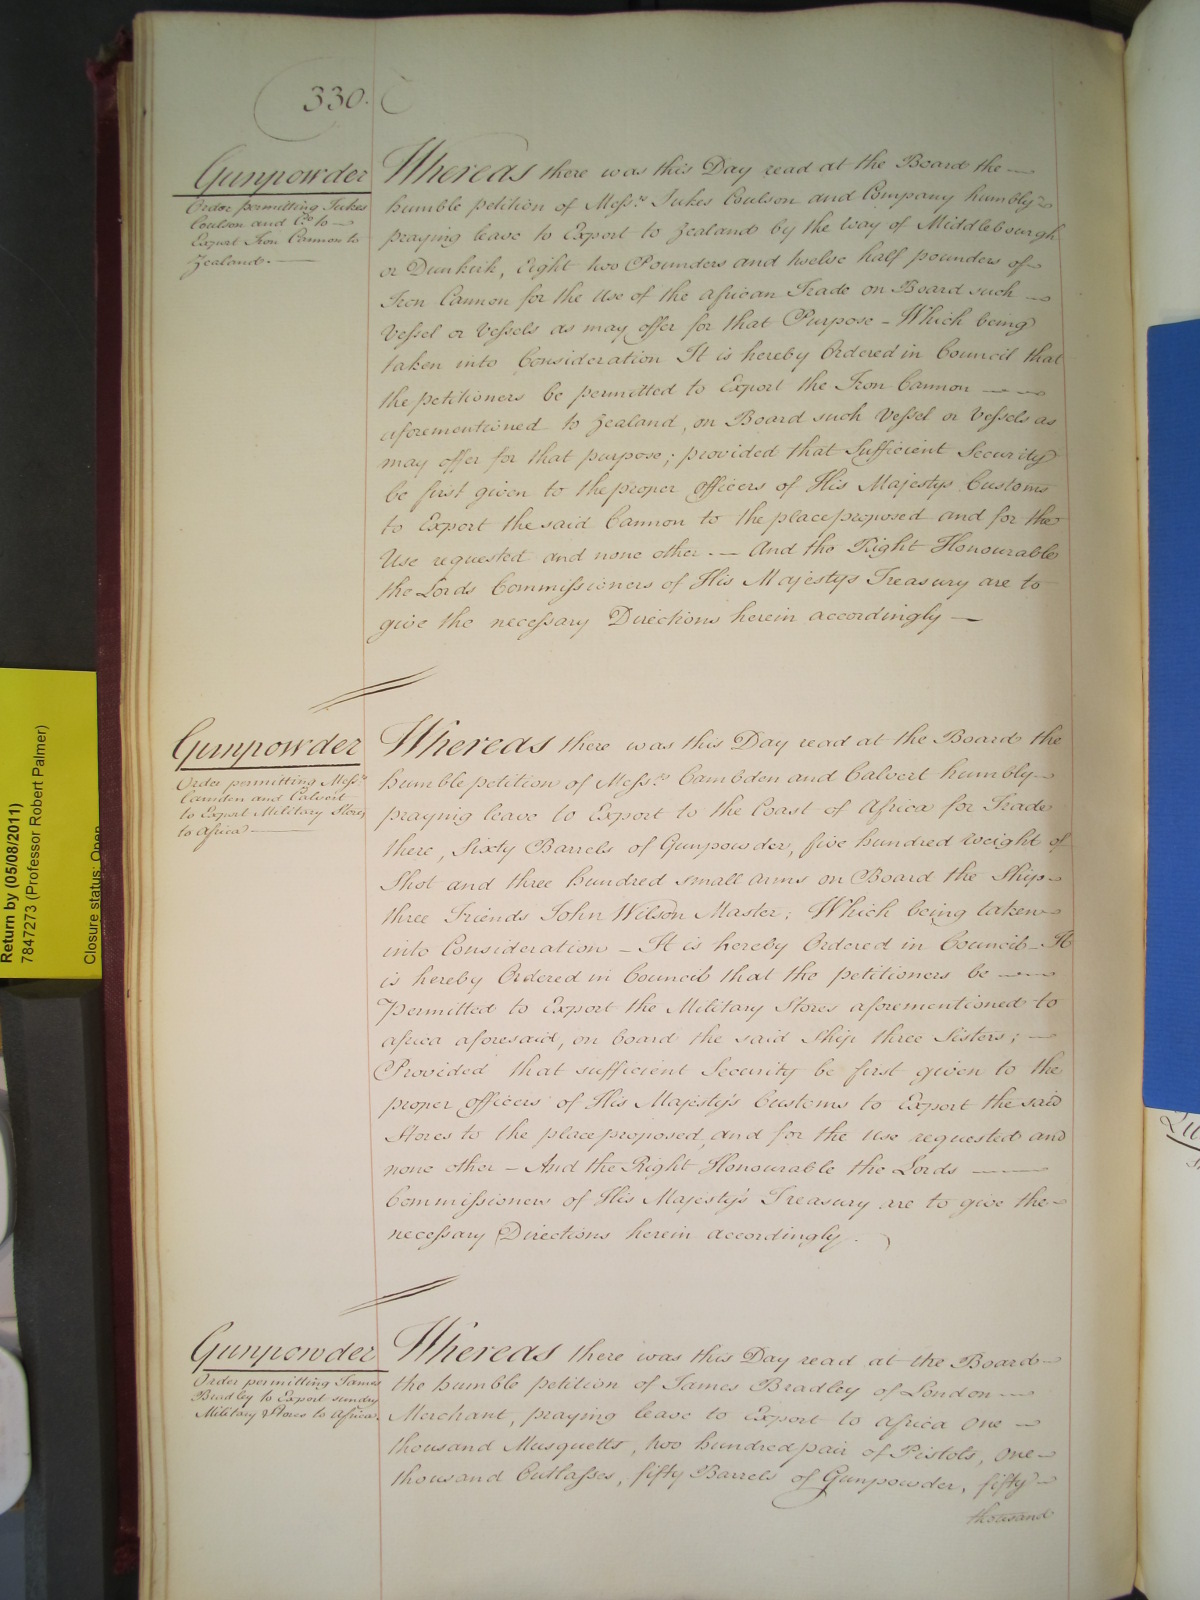 330.
Gunpowder
Order permitting Jukes
Coulson and Co. to
Export Iron Cannon to
Zealand.
Whereas there was this Day read at the Board the
humble petition of Messrs. Jukes Coulson and Company humbly
praying leave to Export to Zealand by the way of Middlebourgh
or Dunkirk, Eight two Pounders and twelve half pounders of
Iron Cannon for the Use of the African Trade on Board such
Vessel or Vessels as may offer for that Purpose - Which being
taken into Consideration It is hereby Ordered in Council that
the petitioners be permitted to Export the Iron Cannon
aforementioned to Zealand, on Board such Vessel or Vessels as
may offer for that purpose; provided that Sufficient Security
be first given to the proper Officers of His Majestys Customs
to Export the said Cannon to the place proposed and for the
Use requested and none other. — And the Right Honourable
the Lords Commissioners of His Majestys Treasury are to
give the necessary Directions herein accordingly —
Gunpowder
Order permitting Messrs.
Camden and Calvert
to Export Military Stores
to Africa
Whereas there was this Day read at the Board the
humble petition of Messrs. Cambden and Calvert humbly
praying leave to Export to the Coast of Africa for Trade
there, Sixty Barrels of Gunpowder, five hundred weight of
Shot and three hundred small arms on Board the Ship
three Friends John Wilson Master; Which being taken
into Consideration - It is hereby Ordered in Council - It
is hereby Ordered in Council that the petitioners be
Permitted to Export the Military Stores aforementioned to
Africa aforesaid, on board the said Ship three Sisters; —
Provided that sufficient Security be first given to the
proper Officers of His Majesty's Customs to Export the said
Stores to the place proposed, and for the Use requested and
none other - And the Right Honourable the Lords
Commissioners of His Majesty's Treasury are to give the
necessary Directions herein accordingly.
Gunpowder
Order permitting James
Bradley to Export sundry
Military Stores to Africa.
Whereas there was this Day read at the Board
the humble petition of James Bradley of London
Merchant, praying leave to Export to Africa One
thousand Musquetts, two hundred pair of Pistols, One
thousand Cutlasses, fifty Barrels of Gunpowder, fifty
thousand
Return by (05/08/2011)
7847273 (Professor Robert Palmer)
Closure status: Open